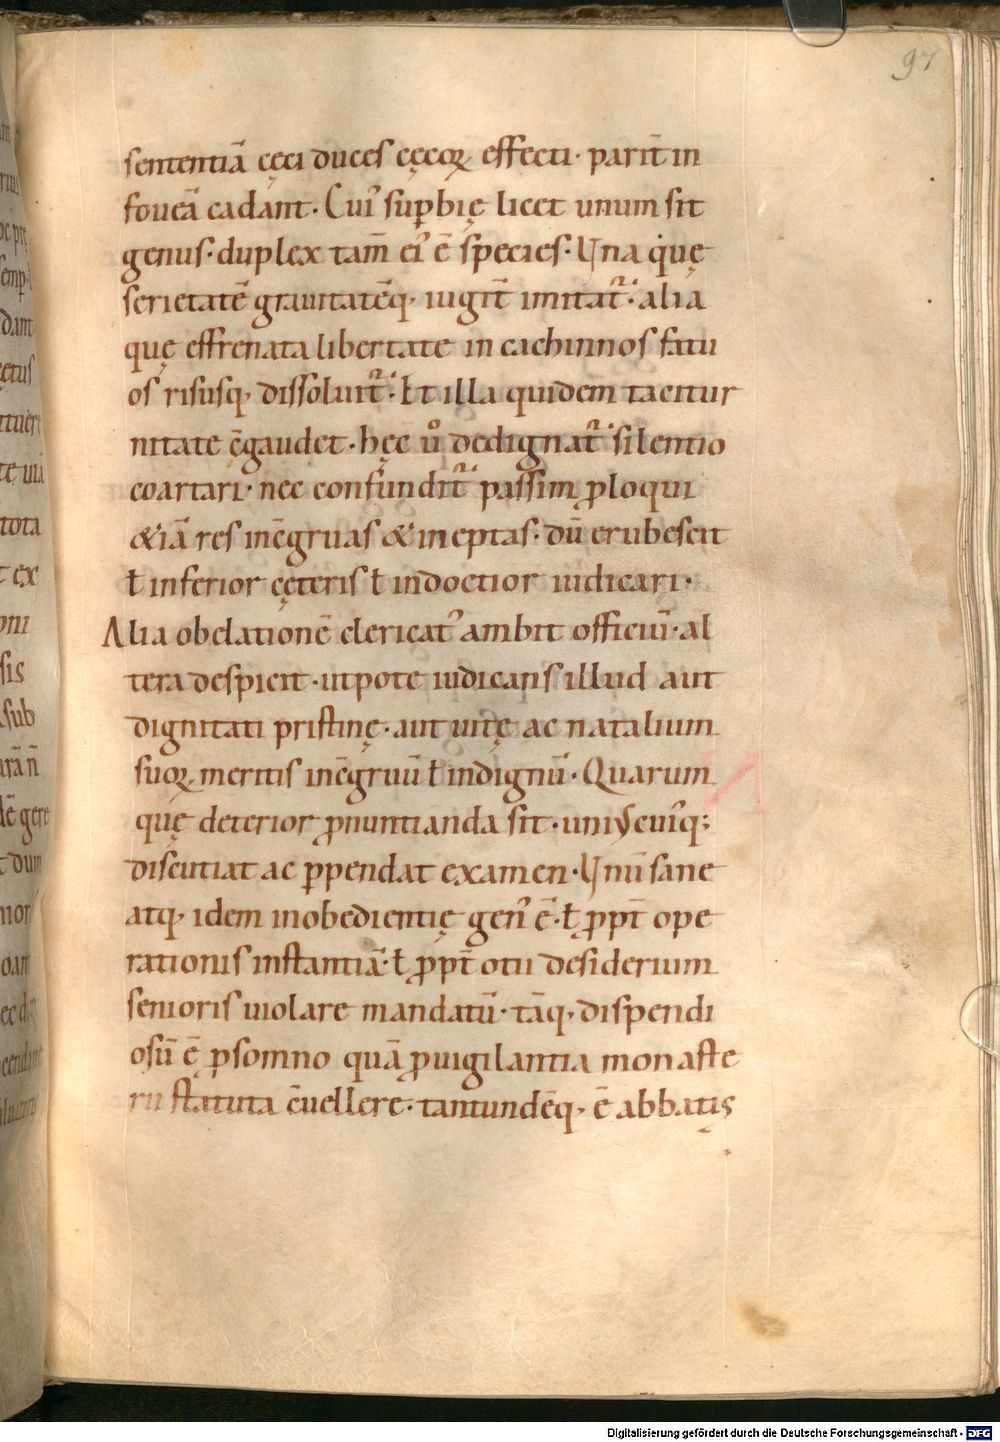 97
sententiā cęci duces cęcoꝝ effecti· parit̄ in
foueā cadant· Cuiꝰ suꝑbię licet unum sit
genus· duplex tam̄ eiꝰ ē species· Una q̇dę
serietatē grauitatēq; iugit̄ imitat᷑· alia
quę effrenata libertate in cachinnos fatu
os risusq; dissoluit᷑· Et illa quidem tacitur
nitate c̄gaudet· hęc ů dedignat᷑ silentio
coartari· nec confundit᷑ passim ꝓloqui
&iā res inc̄gruas & ineptas· dū erubescit
ł inferior cęteris ł indoctior iudicari·
Alia ob elationē clericatꝰ ambit officiū· al
tera despicit· utpote iudicans illud aut
dignitati pristinę· aut uitę ac natalium
suoꝝ meritis inc̄gruū ł indignū· Quarum
quę deterior ꝓnuntianda sit· uniꝰcuiꝰq;
discutiat ac ꝑpendat examen· Unū sane
atq; idem inobedientię genꝰ ē· ł ꝓpt̄ ope
rationis instantiā· ł ꝓpt̄ otii desiderium
senioris uiolare mandatū· tāq; dispendi
osū ē ꝓ somno quā ꝓ uigilantia monaste
rii statuta c̄uellere· tantundēq; ē abbatis
Digitalisierung gefördert durch die Deutsche Forschungsgemeinschaft - DFG